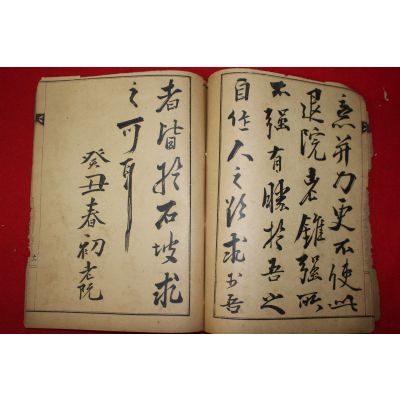 意并力更不使此
退院老錐强所
不强有勝於吾之
自作人之欲求於吾
者皆於石坡求
之可耳
癸丑春初老阮